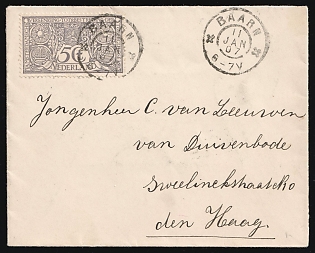 5c
NEDERLAND
BAARN
11
JAN
BAARN
11
JAN
07
6-7V
Jongenheer C. van Leeuwen
van Duivenbode
den Haag.